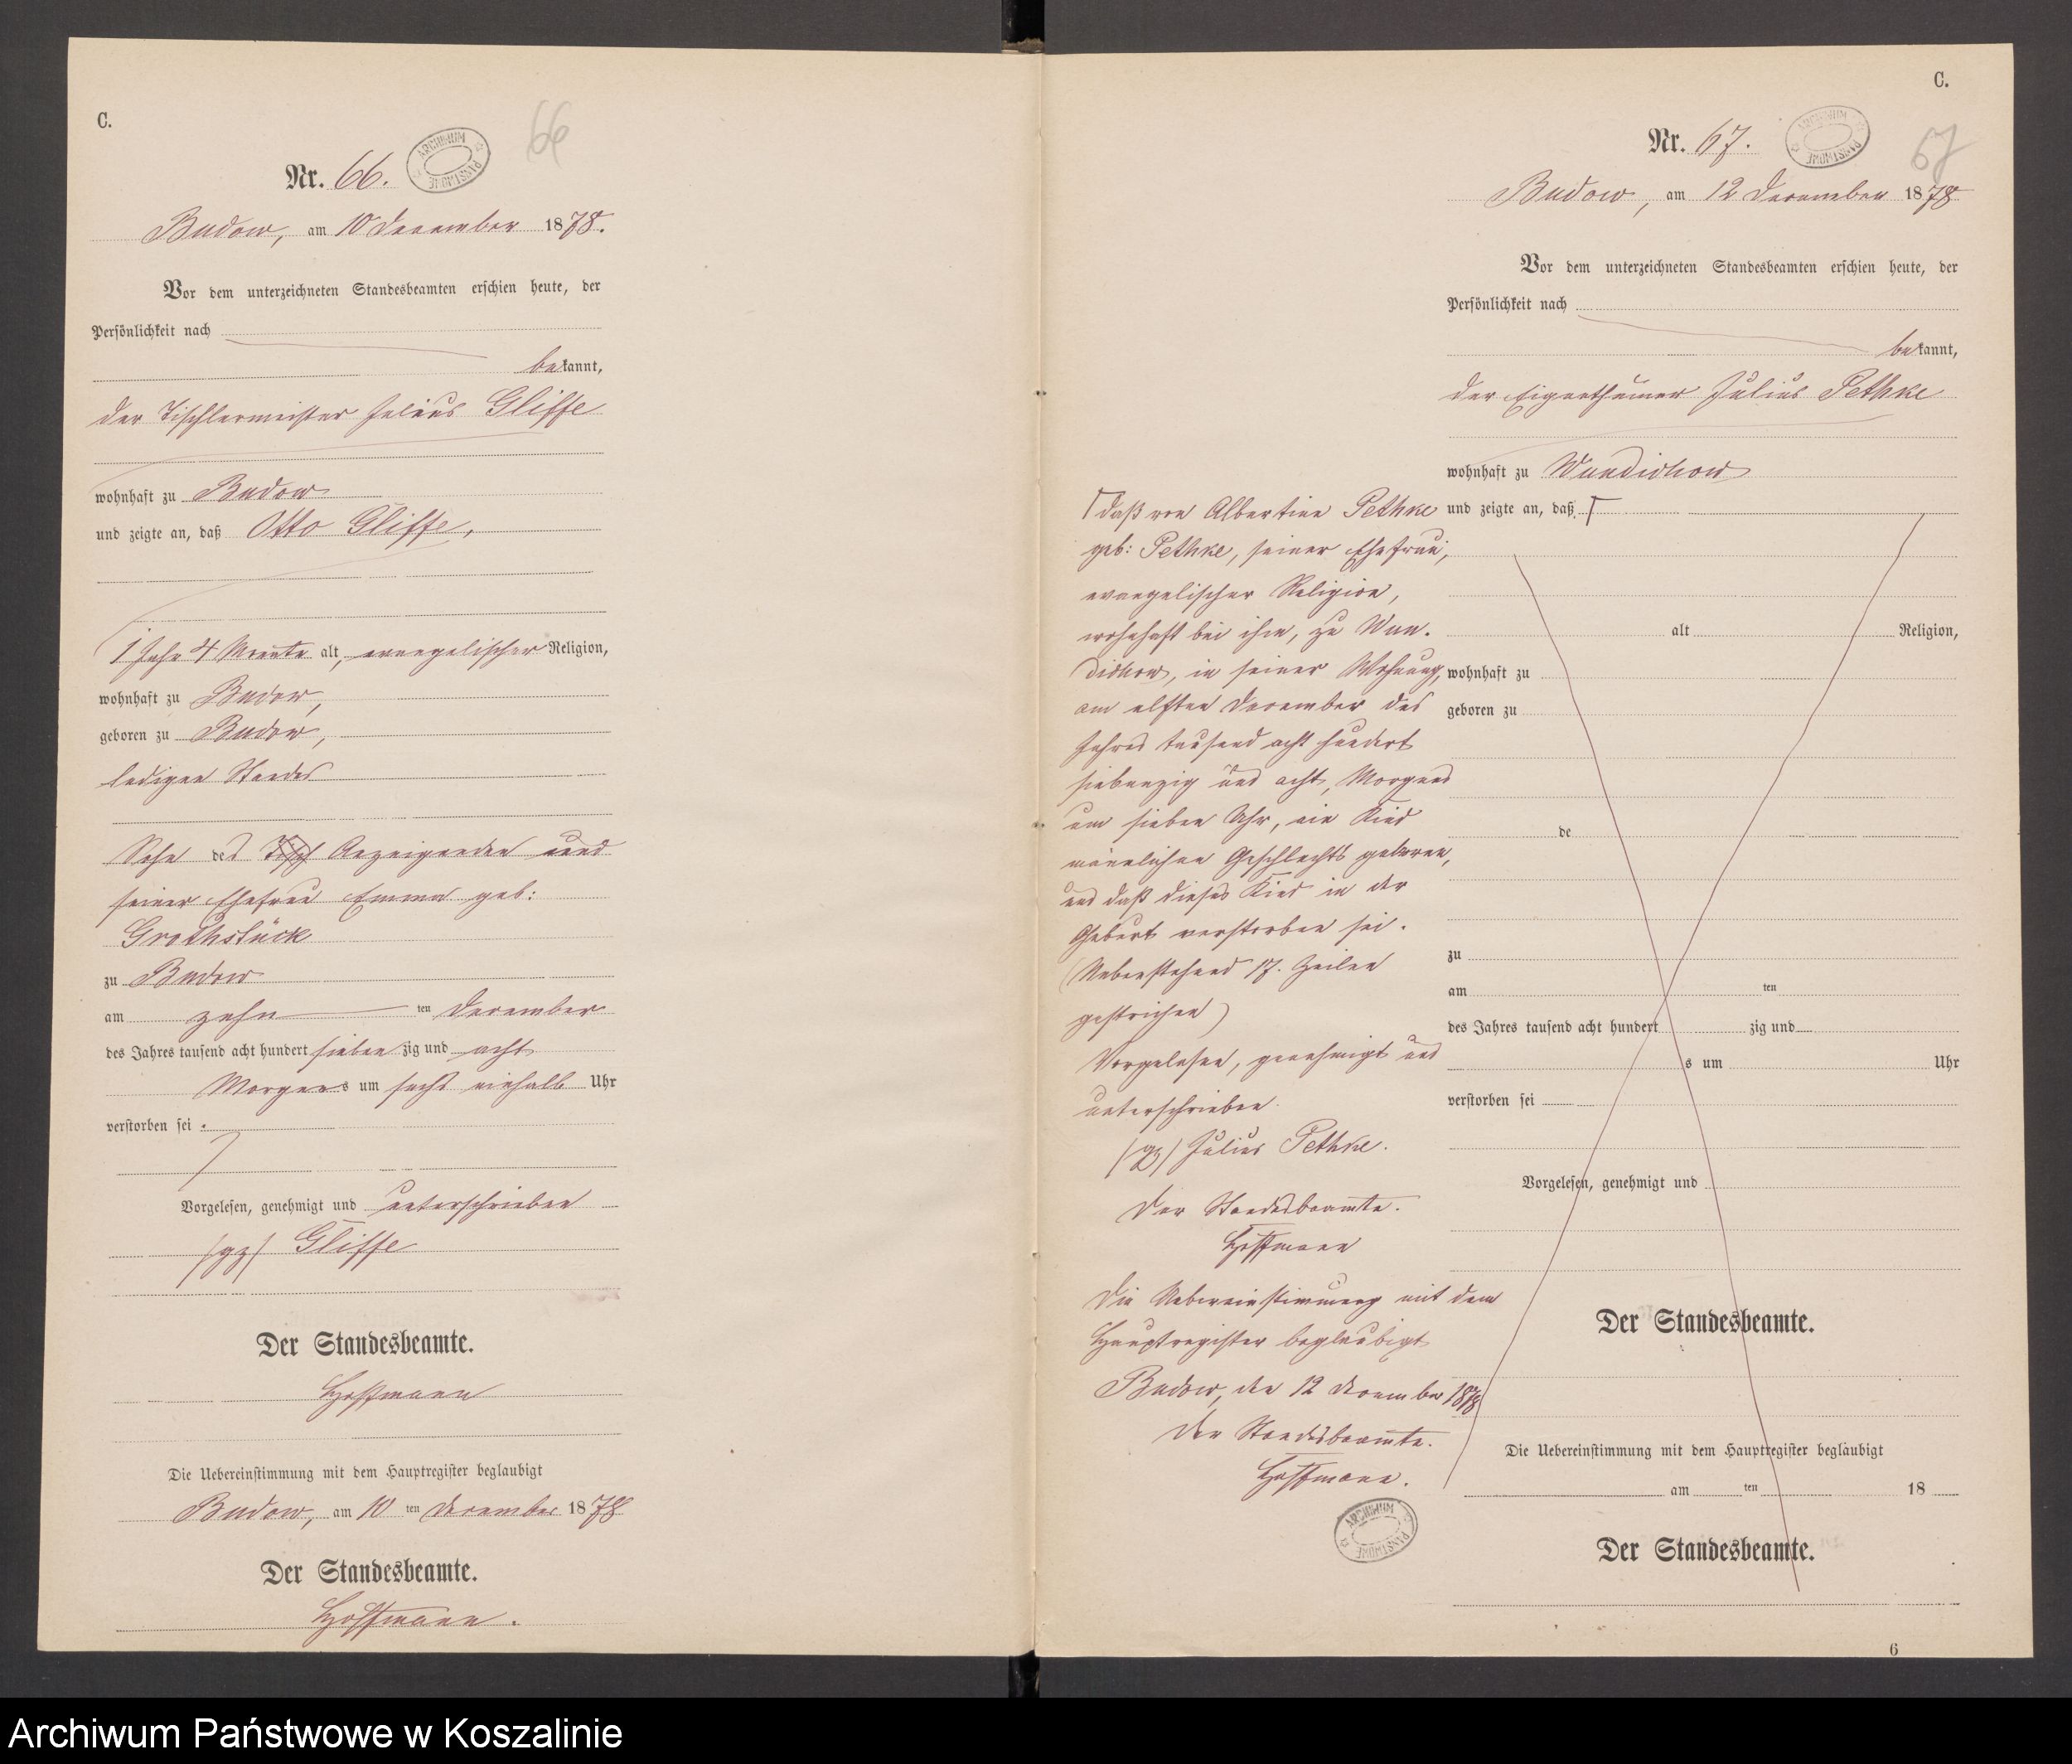 C.
Nr. 66.
66
ARCHIWUM PAŃSTWOWE
Budow, am 10 December 1878.
Vor dem unterzeichneten Standesbeamten erschien heute, der
Persönlichkeit nach
bekannt,
der Tischlermeister Julius Gliffe
wohnhaft zu Budow
und zeigte an, daß Otto Gliffe,
1 Jahr 4 Monate alt, evangelischer Religion,
wohnhaft zu Budow,
geboren zu Budow,
ledigen Standes
Sohn des Tisch Anzeigenden und
seiner Ehefrau Emma geb:
Grothstück
zu Budow
am zehn ten December
des Jahres tausend acht hundert sieben zig und acht
Morgens um sechs einhalb Uhr
verstorben sei.
Vorgelesen, genehmigt und unterschrieben
(gz) Gliffe
Der Standesbeamte.
Hoffmann
Die Uebereinstimmung mit dem Hauptregister beglaubigt
Budow, am 10 ten December 1878
Der Standesbeamte.
Hoffmann.
C.
Nr. 67.
ARCHIWUM PAŃSTWOWE
67
Budow, am 12 December 1878
Vor dem unterzeichneten Standesbeamten erschien heute, der
Persönlichkeit nach
bekannt,
der Eigenthümer Julius Pethke
wohnhaft zu Wundichow
und zeigte an, daß Γ
Γ daß von Albertine Pethke
geb: Pethke, seiner Ehefrau,
evangelischer Religion,
wohnhaft bei ihm, zu Wun-
dichow, in seiner Wohnung,
am elften December des
Jahres tausend acht hundert
siebenzig und acht, Morgens
um sieben Uhr, ein Kind
männlichen Geschlechts geboren,
und daß dieses Kind in der
Geburt verstorben sei.
(Nebenstehend 17. Zeilen
gestrichen)
Vorgelesen, genehmigt und
unterschrieben.
(gz) Julius Pethke.
Der Standesbeamte.
Hoffmann
Die Uebereinstimmung mit dem
Hauptregister beglaubigt
Budow, den 12 December 1878
Der Standesbeamte.
Hoffmann.
ARCHIWUM PAŃSTWOWE
alt Religion,
wohnhaft zu
geboren zu
de
zu
am ten
des Jahres tausend acht hundert zig und
s um Uhr
verstorben sei
Vorgelesen, genehmigt und
Der Standesbeamte.
Die Uebereinstimmung mit dem Hauptregister beglaubigt
am ten 18
Der Standesbeamte.
6
Archiwum Państwowe w Koszalinie